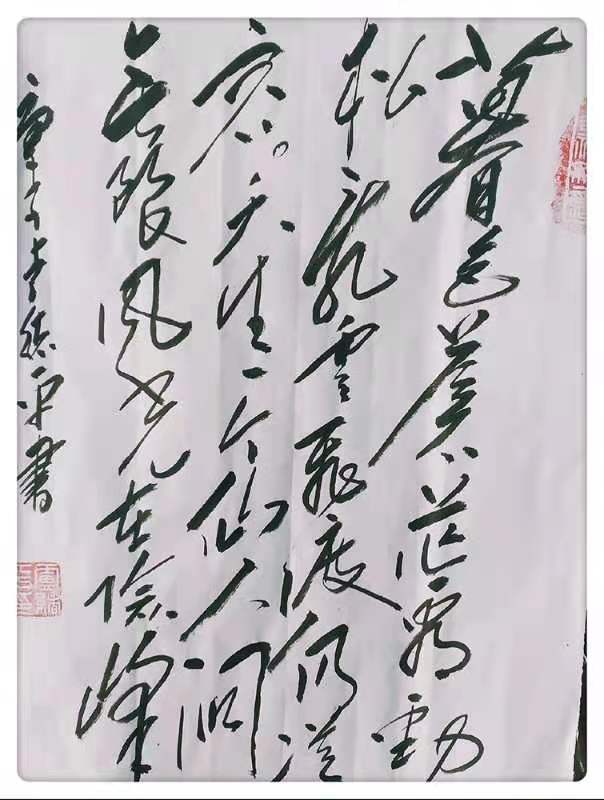 暮色苍茫看劲
松乱云飞渡仍从
容天生一个仙人洞
无限风光在险峰
书